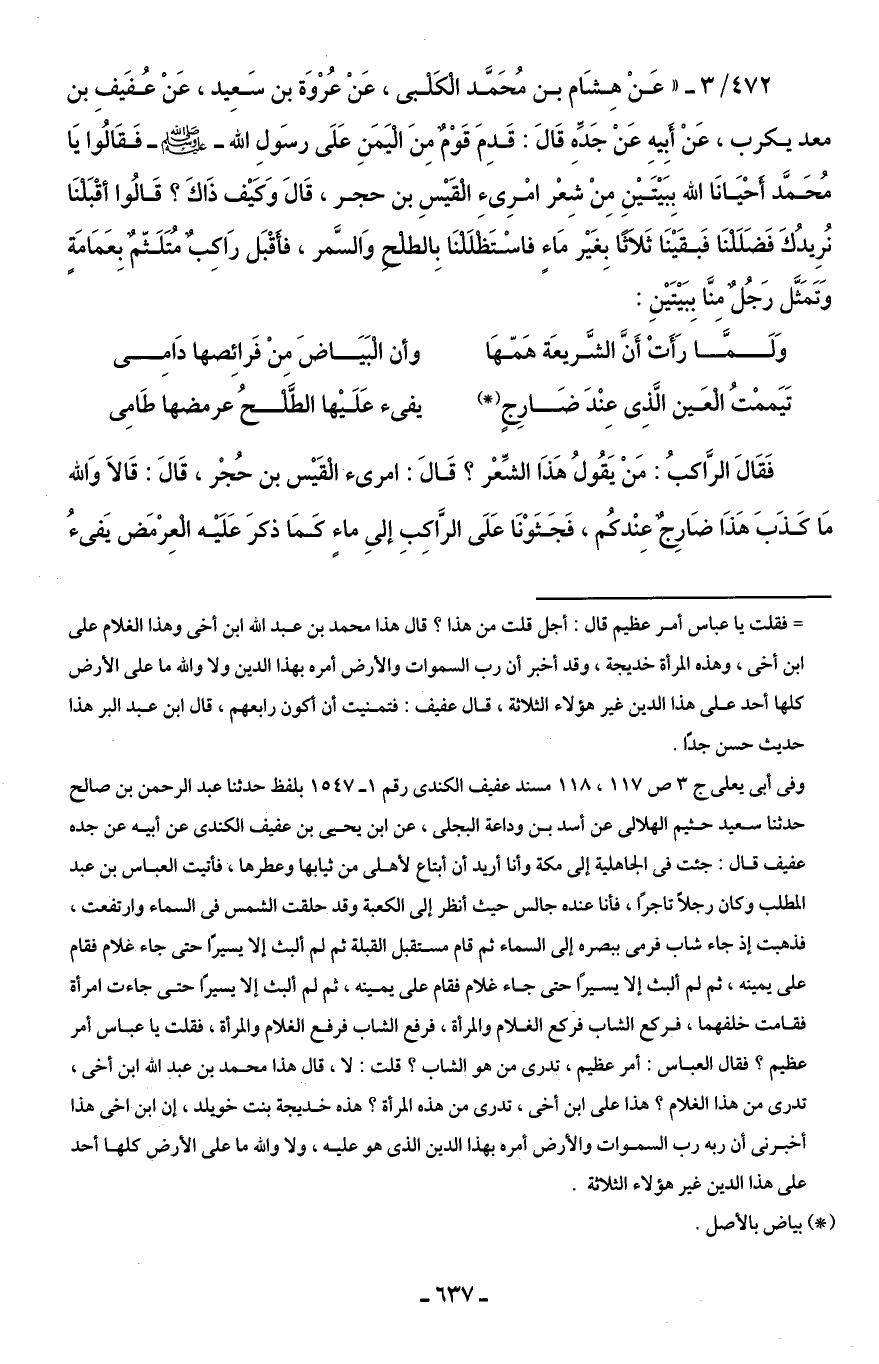 ٤٧٢/ ٣ ـ « عَنْ هِشَام بن مُحَمَّد الْكَلْبِى ، عَنْ عُرْوَة بن سَعِيد ، عَنْ عُفَيف بن
معد يكرب ، عَنْ أَبِيه عَنْ جَدِّه قَالَ : قَدِمَ قَوْمٌ مِنَ الْيَمَنِ عَلَى رسَولِ الله ـ ﷺ ـ فَقَالُوا يَا
مُحَمَّد أَحْيَانَا الله بِبَيْتَيْنِ مِنْ شعْر امْرِىء الْقَيْس بن حجر ، قَالَ وَكَيْف ذَاكَ ؟ قَالُوا أقْبَلْنَا
نُرِيدُكَ فَضَلَلْنَا فَبقَيْنَا ثَلاَثًا بِغَيْر مَاءٍ فاسْتَظْلَلْنَا بِالطلْحِ وَالسَّمر ، فأَقْبَل رَاكبٌ مُتَلَثّمٌ بِعَمَامَةٍ
وَتَمَثَّل رَجُلٌ مِنَّا بِبَيْتَيْنِ :
وَلَـمَّـا رَأَتْ أَنَّ الشَّرِيعَة هَمّهَا وأن الْبَيَاضَ مِنْ فَرَائصها دَامِى
تَيَممْتُ الْعَين الَّذِى عِنْدَ ضَارِجٍ(*) يفىء عَلَيْها الطَّلْحُ عرمضها طَامِى
فَقَالَ الرَّاكبُ : مَنْ يَقُولُ هَذَا الشِّعْر ؟ قَالَ : امرىء الْقَيْس بن حُجْر ، قَالَ : قَالاَ وَالله
مَا كَذَبَ هَذَا ضَارِجٌ عِنْدكُم ، فَجَثَوْنَا عَلَى الرَّاكِبِ إلى مَاءٍ كَمَا ذكرَ عَلَيْه الْعِرْمَض يَفىءُ
= فقلت يا عباس أمر عظيم قال : أجل قلت من هذا ؟ قال هذا محمد بن عبد الله ابن أخى وهذا الغلام على
ابن أخى ، وهذه المرأة خديجة ، وقد أخبر أن رب السموات والأرض أمره بهذا الدين ولا والله ما على الأرض
كلها أحد على هذا الدين غير هؤلاء الثلاثة ، قال عفيف : فتمنيت أن أكون رابعهم ، قال ابن عبد البر هذا
حديث حسن جدًا .
وفى أبى يعلى ج ٣ ص ١١٧ ، ١١٨ مسند عفيف الكندى رقم ١ـ ١٥٤٧ بلفظ حدثنا عبد الرحمن بن صالح
حدثنا سعيد حثيم الهلالى عن أسد بن وداعة البجلى ، عن ابن يحيى بن عفيف الكندى عن أبيه عن جده
عفيف قال : جئت فى الجاهلية إلى مكة وأنا أريد أن أبتاع لأهلى من ثيابها وعطرها ، فأتيت العباس بن عبد
المطلب وكان رجلاً تاجرًا ، فأنا عنده جالس حيث أنظر إلى الكعبة وقد حلقت الشمس فى السماء وارتفعت ،
فذهبت إذ جاء شاب فرمى ببصره إلى السماء ثم قام مستقبل القبلة ثم لم ألبث إلا يسيرًا حتى جاء غلام فقام
على يمينه ، ثم لم ألبث إلا يسيرًا حتى جاء غلام فقام على يمينه ، ثم لم ألبث إلا يسيرًا حتى جاءت امرأة
فقامت خلفهما ، فركع الشاب فركع الغلام والمرأة ، فرفع الشاب فرفع الغلام والمرأة ، فقلت يا عباس أمر
عظيم ؟ فقال العباس : أمر عظيم ، تدرى من هو الشاب ؟ قلت : لا ، قال هذا محمد بن عبد الله ابن أخى ،
تدرى من هذا الغلام ؟ هذا على ابن أخى ، تدرى من هذه المرأة ؟ هذه خديجة بنت خويلد ، إن ابن اخى هذا
أخبرنى أن ربه رب السموات والأرض أمره بهذا الدين الذى هو عليه ، ولا والله ما على الأرض كلها أحد
على هذا الدين غير هؤلاء الثلاثة .
(*) بياض بالأصل .
ـ ٦٣٧ ـ